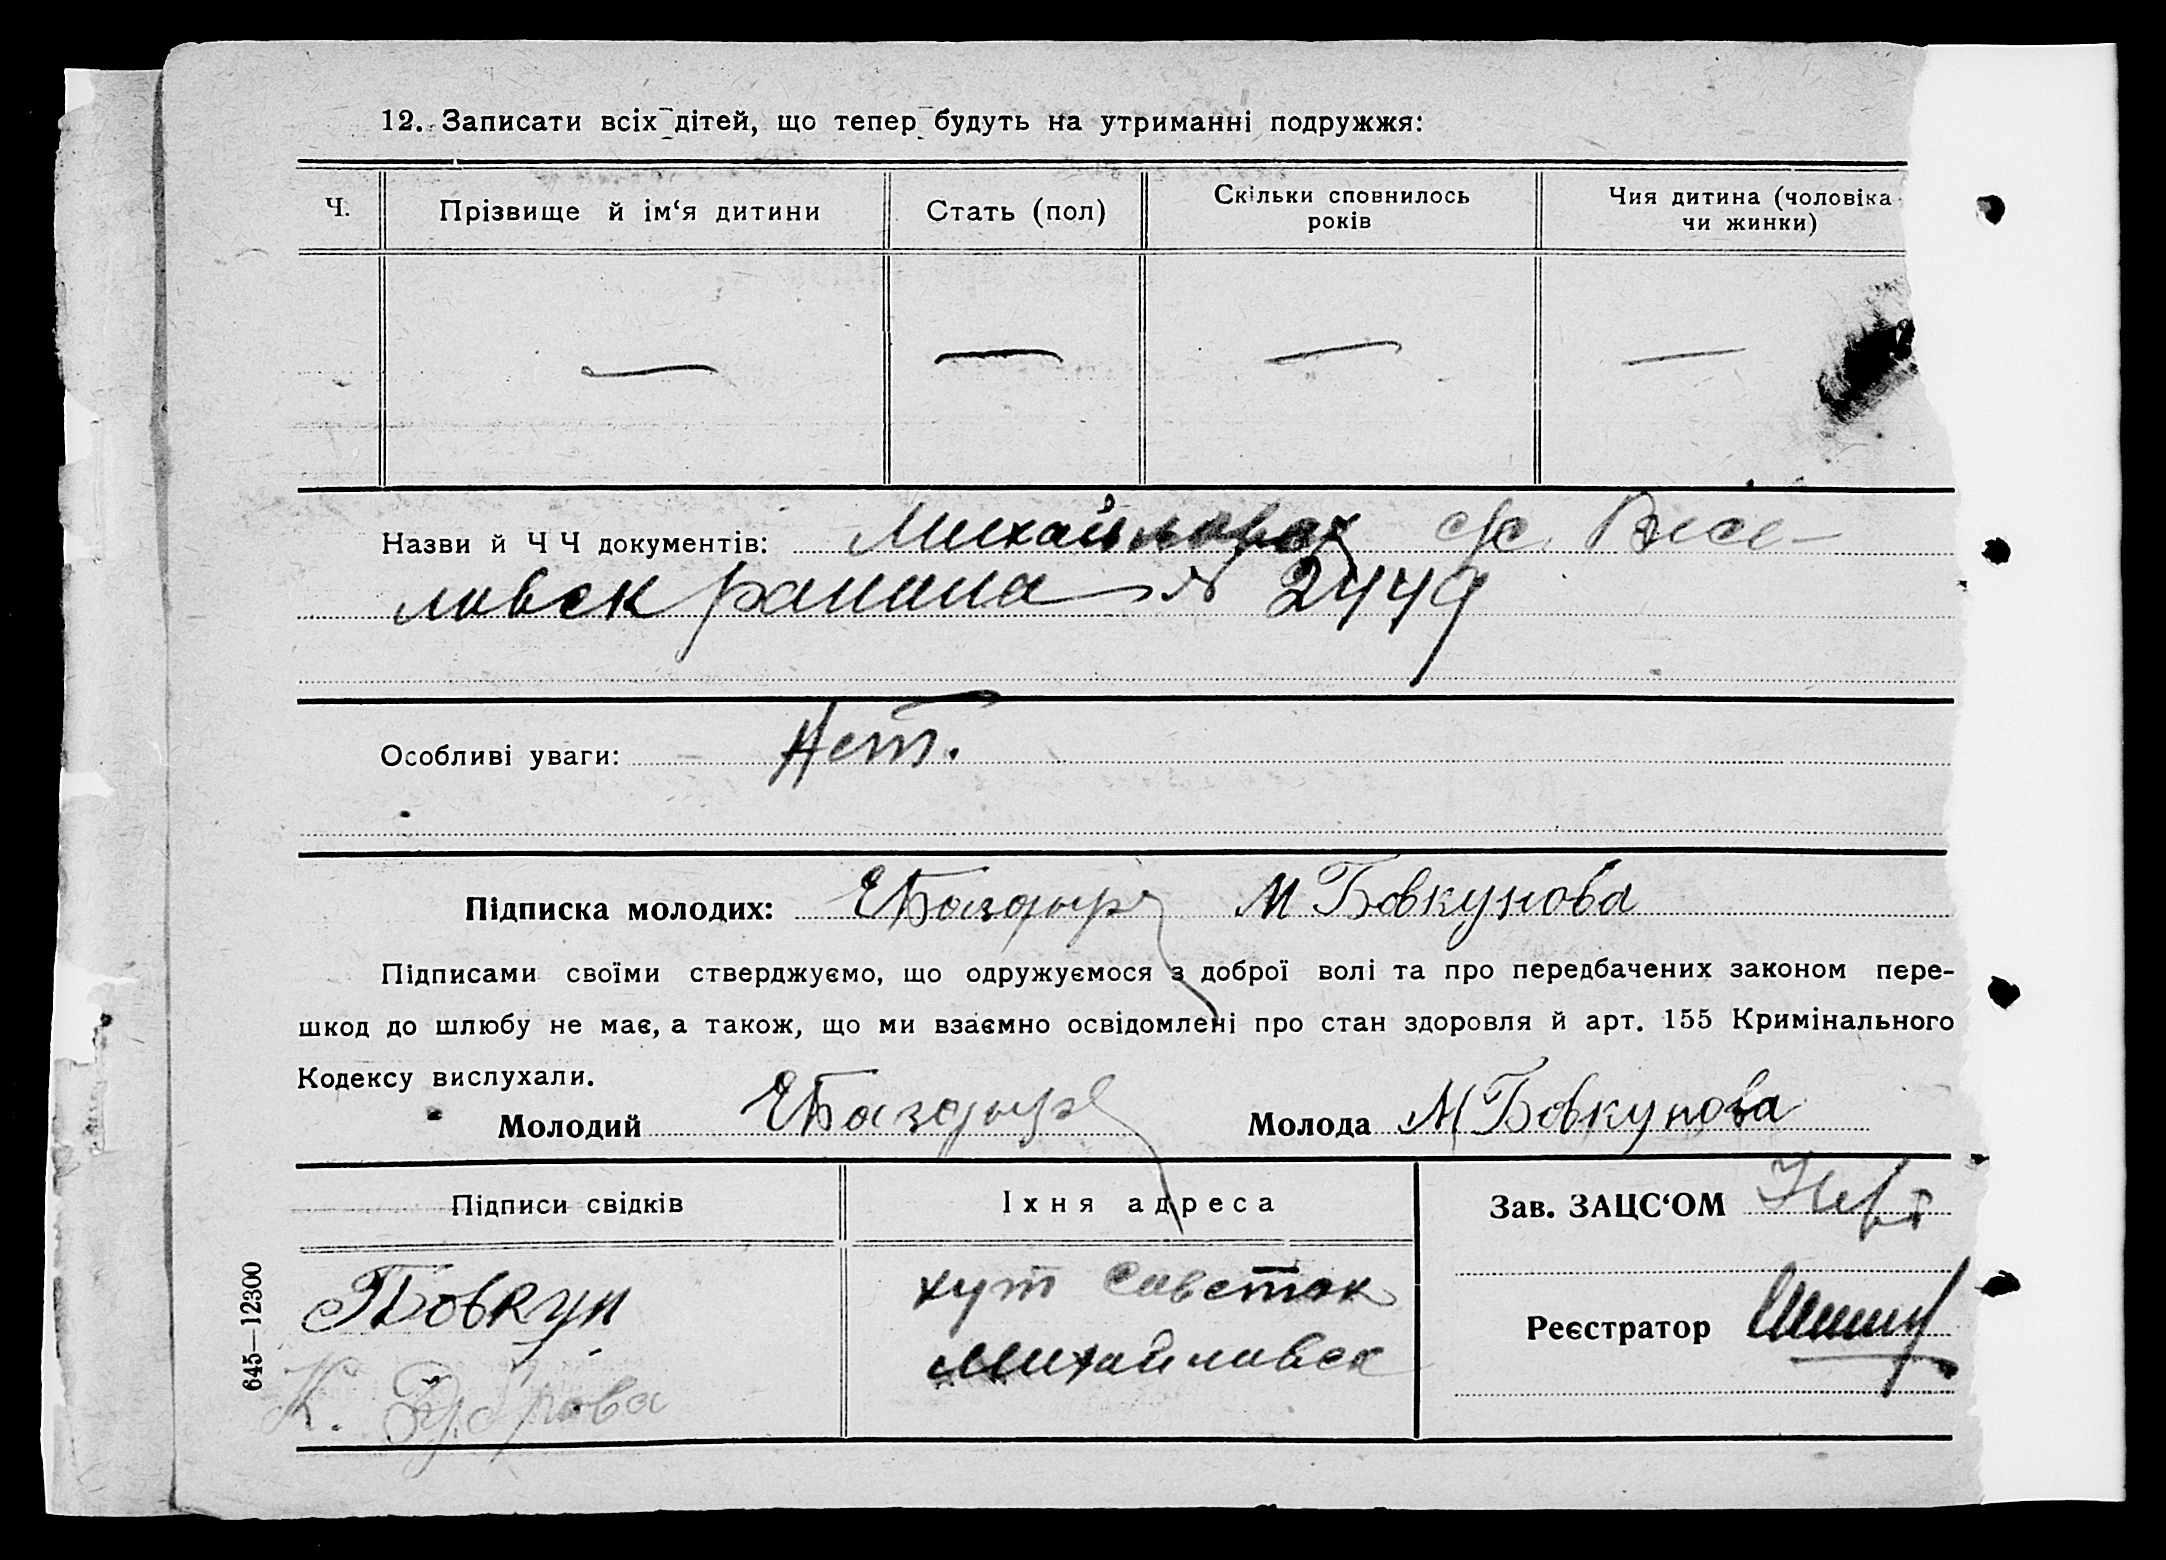 12. Записати всіх дітей, що тепер будуть на утриманні подружжя:
Ч.
Прізвище й ім‘я дитини
Стать (пол)
Скільки сповнилось
років
Чия дитина (чоловіка
чи жинки)
— — — —
Назви й Ч Ч документів: с/с. Висе-
ливск района № 2449
Особливі уваги: Нет.
Підписка молодих: М Бовкунова
Підписами своїми стверджуємо, що одружуємося з доброї волі та про передбачених законом пере-
шкод до шлюбу не має, а також, що ми взаємно освідомлені про стан здоровля й арт. 155 Кримінального
Кодексу вислухали.
Молодий Молода М Бовкунова
Підписи свідків
Іхня адреса
Зав. ЗАЦС‘ОМ
Бовкун
хут
Михайливск
К.
Реєстратор
645—12300